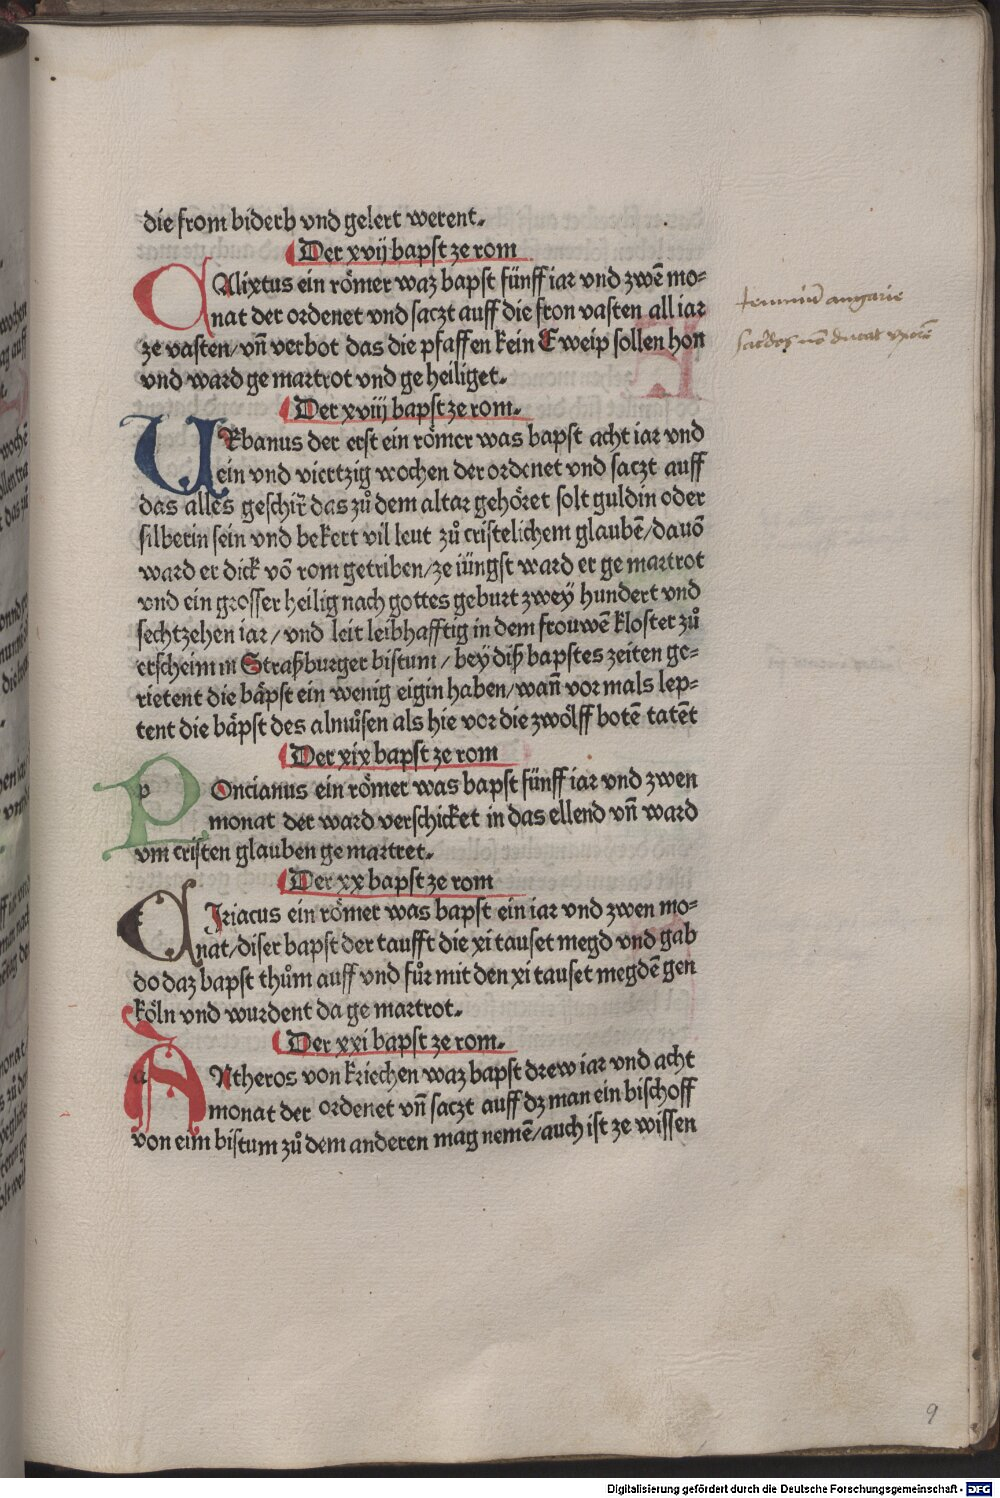 die from biderb vnd gelert werent.
Der xvij bapst ze rom
CAlixtus ein römer waz bapst fünff iar vnd zwē mo=
nat der ordenet vnd saczt auff die fron vasten all iar
ze vasten/vn̄ verbot das die pfaffen kein Eweip sollen hon
vnd ward ge martrot vnd ge heiliget.
Der xviij bapst ze rom.
URbanus der erst ein römer was bapst acht iar vnd
ein vnd viertzig wochen der ordenet vnd saczt auff
das alles geschir̄ das zů dem altar gehöret solt guldin oder
silberin sein vnd bekert vil leut zů cristelichem glaubē/dauō
ward er dick vō rom getriben/ze iüngst ward er ge martrot
vnd ein grosser heilig nach gottes geburt zwey hundert vnd
sechtzehen iar/vnd leit leibhafftig in dem frouwē kloster zů
erscheim in Straßburger bistum/bey diß bapstes zeiten ge=
rietent die bäpst ein wenig eigin haben/wan̄ vor mals lep=
tent die bäpst des almůsen als hie vor die zwölff botē tatēt
Der xix bapst ze rom
POncianus ein römer was bapst fünff iar vnd zwen
monat der ward verschicket in das ellend vn̄ ward
vm cristen glauben ge martret.
Der xx bapst ze rom
CIriacus ein römer was bapst ein iar vnd zwen mo=
nat/diser bapst der taufft die xi tauset megd vnd gab
do daz bapst thům auff vnd fůr mit den xi tauset megdē gen
köln vnd wurdent da ge martrot.
Der xxi bapst ze rom.
ANtheros von kriechen waz bapst drew iar vnd acht
monat der ordenet vn̄ saczt auff dz man ein bischoff
von eim bistum zů dem anderen mag nemē/auch ist ze wissen
angarie
9
Digitalisierung gefördert durch die Deutsche Forschungsgemeinschaft - DFG